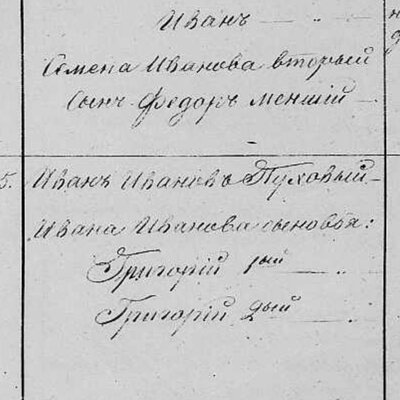 Иванъ
Семена Иванова вторый
сынъ Федоръ меншій
5. Иванъ Ивановъ Пуховый
Ивана Иванова сыновья:
Григорій 1ый
Григорій 2ый